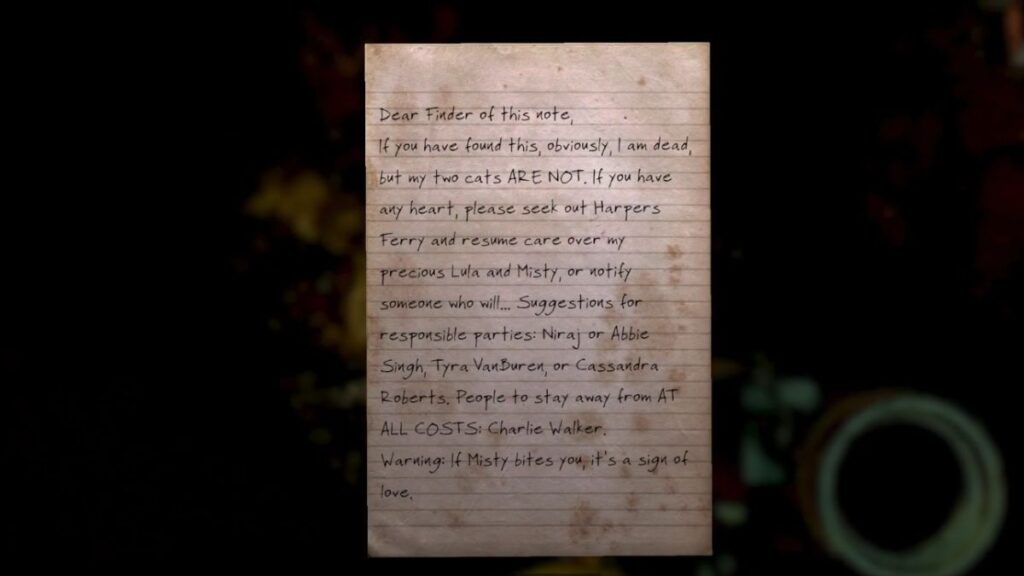 Dear Finder of this note,
If you have found this, obviously, I am dead,
but my two cats ARE NOT. If you have
any heart, please seek out Harpers
Ferry and resume care over my
precious Lula and Misty, or notify
someone who will... Suggestions for
responsible parties: Niraj or Abbie
Singh, Tyra VanBuren, or Cassandra
Roberts. People to stay away from AT
ALL COSTS: Charlie Walker.
Warning: If Misty bites you, it's a sign of
love.